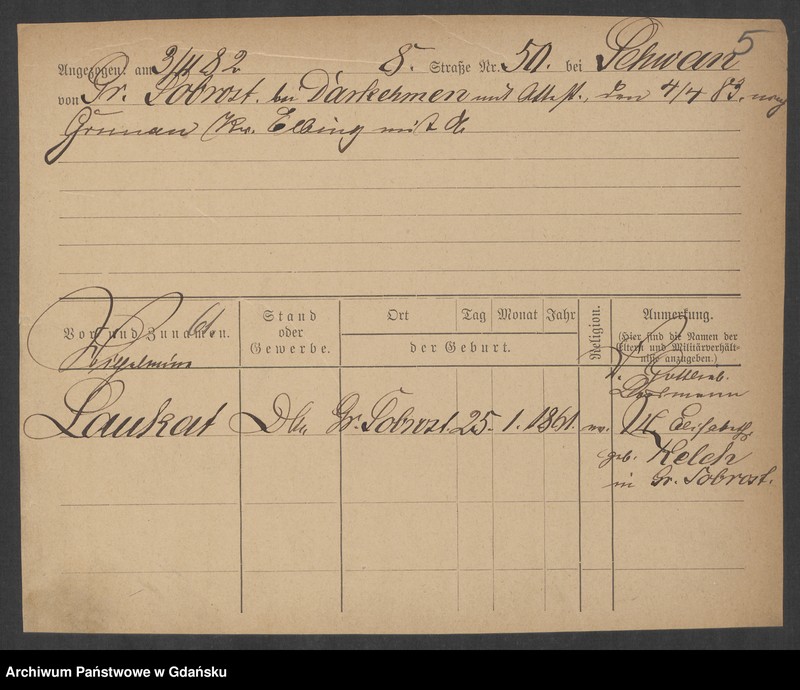 5
Angezogen: am 3/4 82 8. Straße Nr. 50. bei Schwarz
von Gr. Sobrost. bei Darkehmen mit Attest., den 4/4 83. nach
Grunau Kr. Elbing mit
Vor- und Zunamen. 61
Stand
oder
Gewerbe.
Ort Tag Monat Jahr
der Geburt.
Religion.
Anmerkung.
(Hier sind die Namen der
Eltern und Militärverhält-
nisse anzugeben.)
Wilhelmine
Laukat
Gr. Sobrost. 25. 1. 1861. ev.
V. Gottlieb.
M. Elisabeth,
geb. Kelch
in Gr. Sobrost.
Archiwum Państwowe w Gdańsku